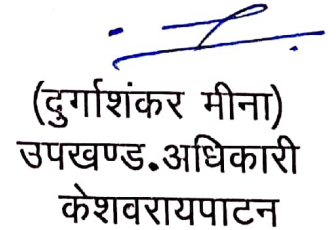 (दुर्गाशंकर मीना)
उपखण्ड.अधिकारी
केशवरायपाटन